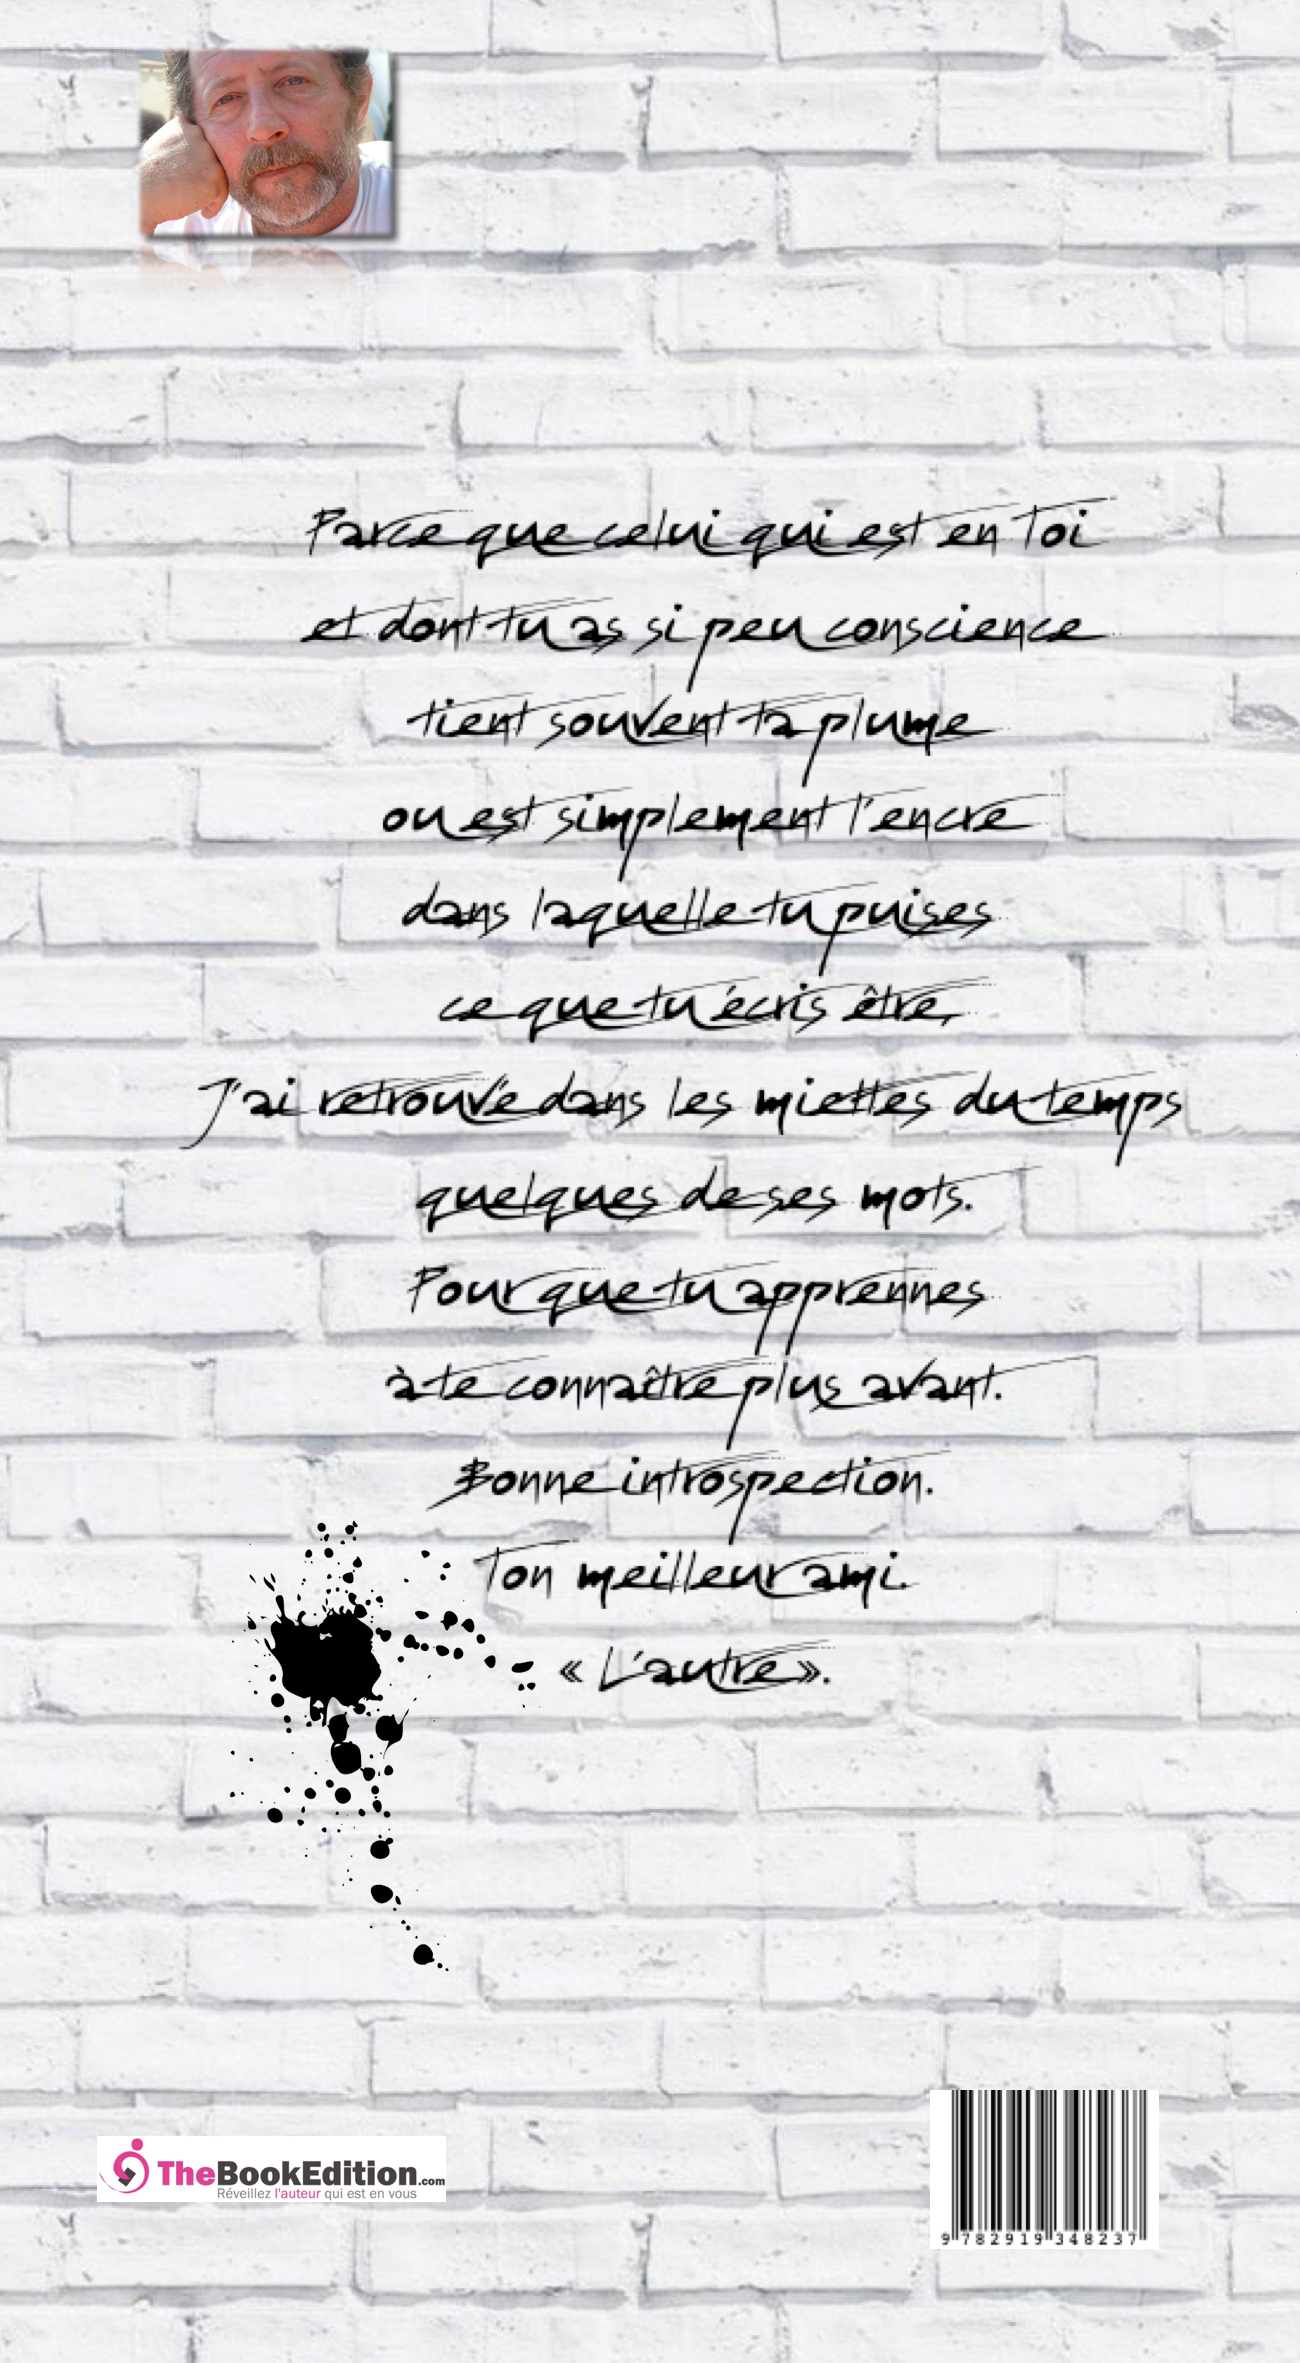 Parce que celui qui est en Toi
et dont tu as si peu conscience
tient souvent ta plume
ou est simplement l'encre
dans laquelle tu puises
ce que tu écris être,
J'ai retrouvé dans les miettes du temps
quelques de ses mots.
Pour que tu apprennes
à te connaître plus avant.
Bonne introspection.
Ton meilleur ami.
« L'autre ».
TheBookEdition.com
Réveillez l'auteur qui est en vous
9 782919 348237